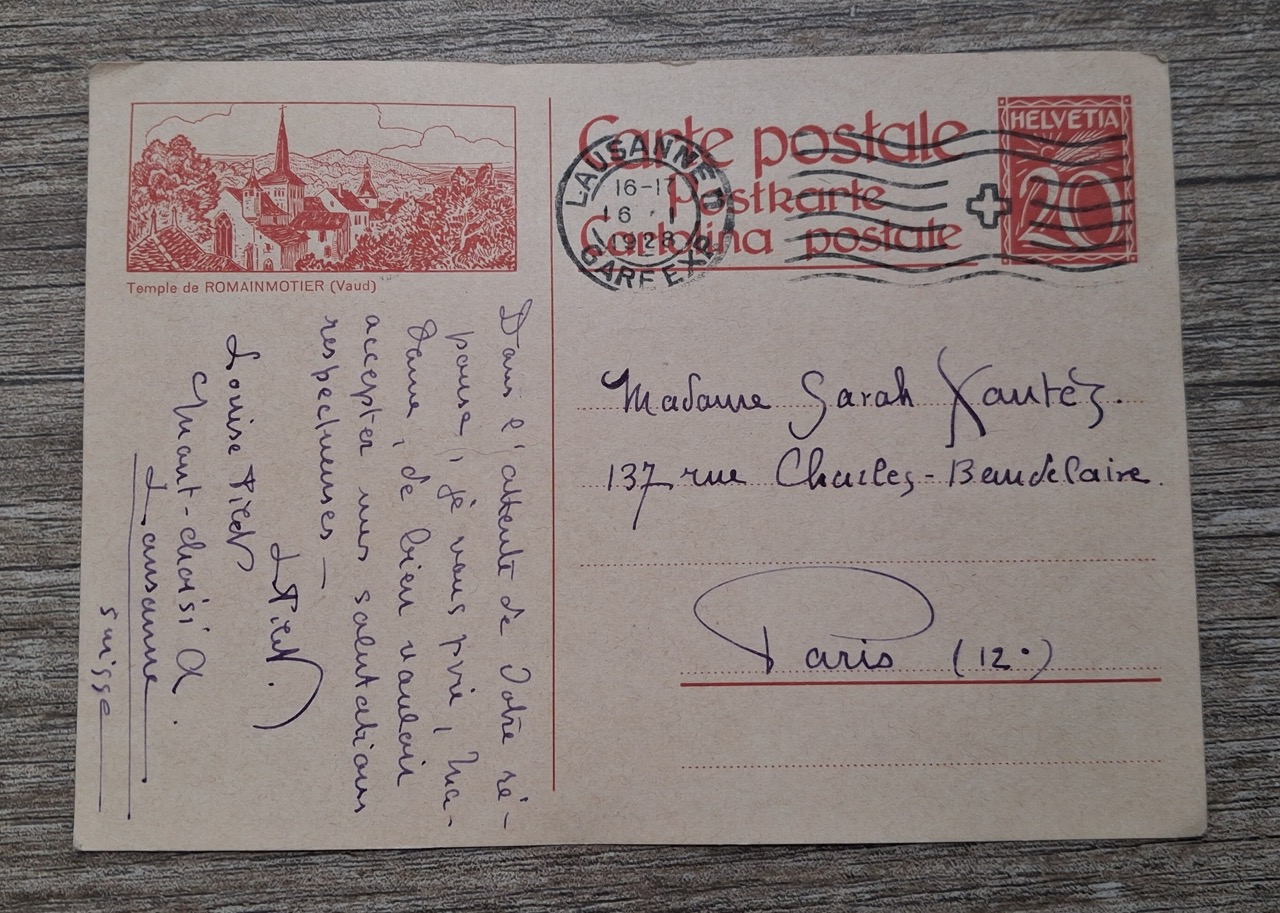 Carte postale
Postkarte
Cartolina postale
HELVETIA
20
LAUSANNE
16-17
16 . I
1928
GARE EXP
Temple de ROMAINMOTIER (Vaud)
Dans l'attente de Votre ré-
ponse, je vous prie, Ma-
dame, de bien vouloir
accepter mes salutations
respectueuses —
Louise
Mont-choisi
Lausanne
Suisse
Madame Sarah Xantés.
137 rue Charles-Beaudelaire.
Paris (12.)